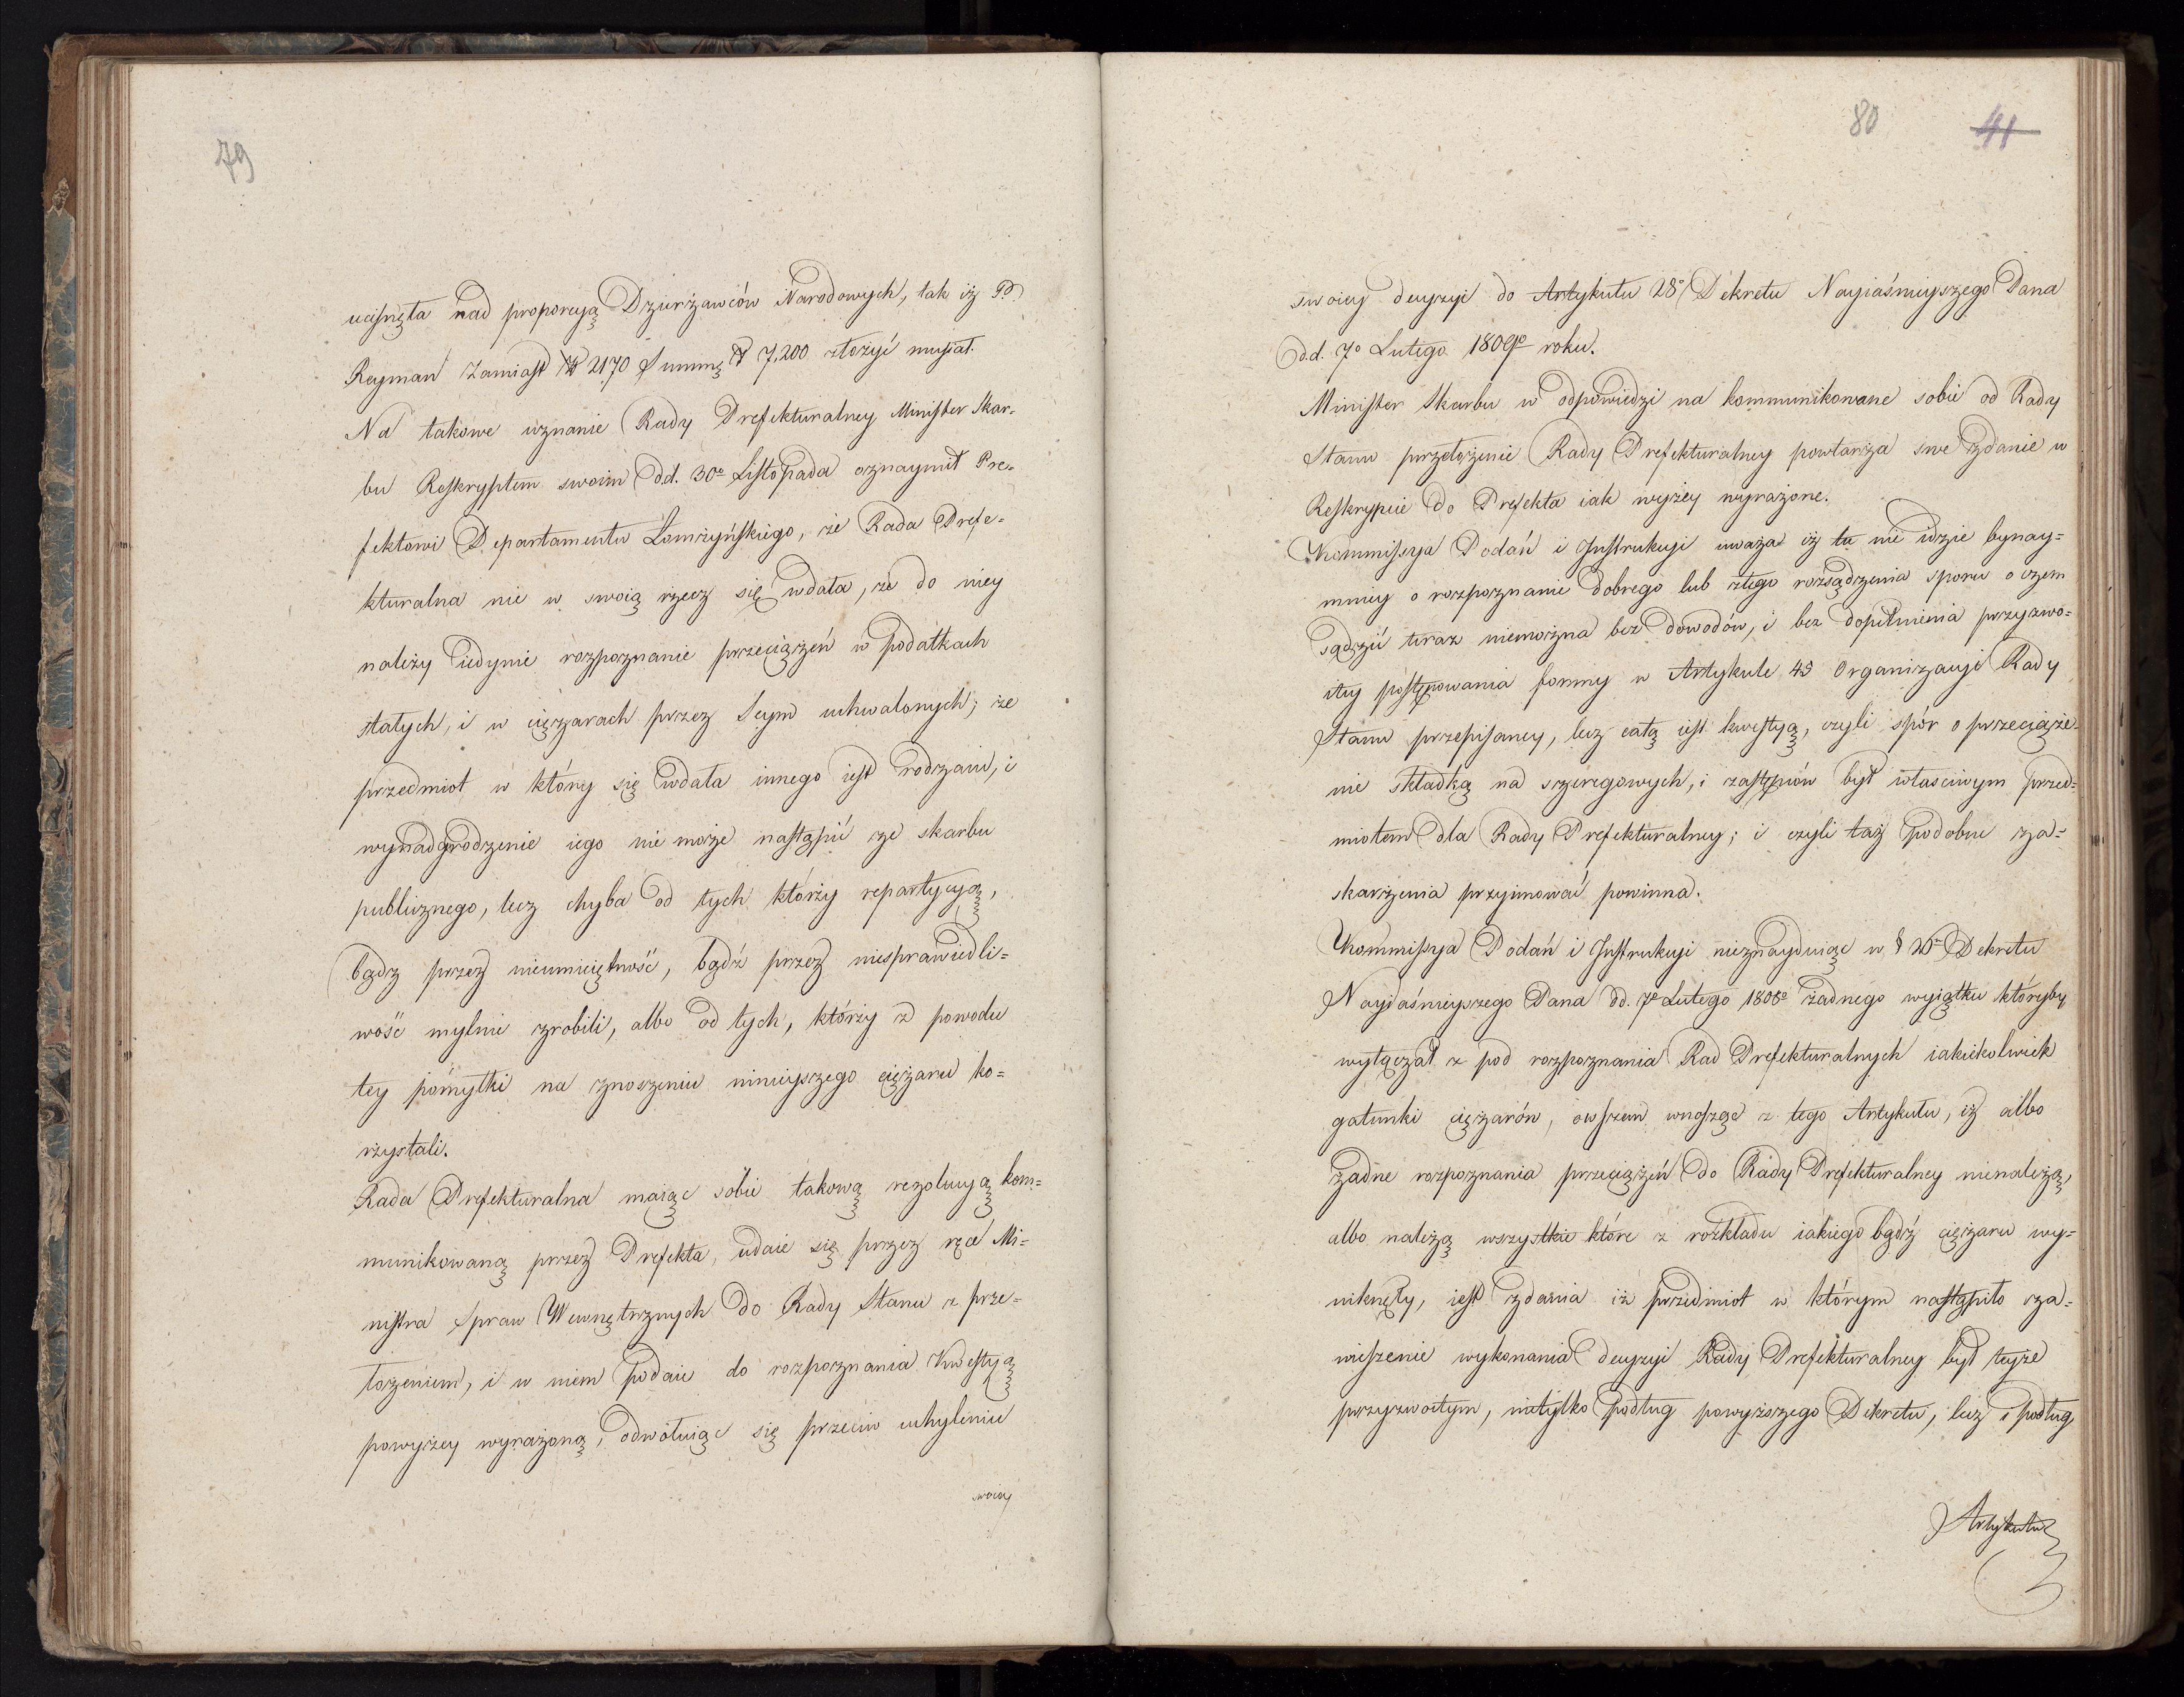 79
ucisnęła nad proporcyą Dzierżawców Narodowych, tak iż P.
Reyman zamiast 2170 Summę 7,200 złożyć musiał.
Na takowe uznanie Rady Prefekturalney Minister Skar=
bu Reskryptem swoim d.d. 30° Listopada oznaymił Pre=
fektowi Departamentu Łomżyńskiego, że Rada Prefe=
kturalna nie w swoią rzecz się wdała, że do niey
należy iedynie rozpoznanie przeciążeń w podatkach
stałych, i w ciężarach przez Seym uchwalonych; że
przedmiot w który się wdała innego iest rodzaiu, i
wynadgrodzenie iego nie może nastąpić ze skarbu
publicznego, lecz chyba od tych którzy repartycyą,
bądz przez nieumieiętność, bądź przez niesprawiedli=
wość mylnie zrobili, albo od tych, którzy z powodu
tey pomyłki na znoszeniu mnieyszego ciężaru ko=
rzystali.
Rada Prefekturalna maiąc sobie takową rezolucyą kom=
munikowaną przez Prefekta, udaie się przez ręce Mi=
nistra Spraw Wewnętrznych do Rady Stanu z prze=
łożeniem, i w niem podaie do rozpoznania Kwestyą
powyżey wyrażoną, odwołuiąc się przeciw uchyleniu
swoiey
80 41
swoiey decyzyi do Artykułu 28° Dekretu Nayiaśnieyszego Pana
d.d. 7° Lutego 1809° roku.
Minister Skarbu w odpowiedzi na kommunikowane sobie od Rady
Stanu przełożenie Rady Prefekturalney powtarza swe zdanie w
Reskrypcie do Prefekta iak wyżey wyrażone.
Kommissya Podań i Instrukcyi uważa iż tu nie idzie bynay=
mniey o rozpoznanie dobrego lub złego rozsądzenia sporu o czem
sądzić teraz niemożna bez dowodów, i bez dopełnienia przyzwo=
itey postępowania formy w Artykule 45 Organizacyi Rady
Stanu przepisaney, lecz całą iest kwestyą, czyli spór o przeciąże=
nie składką na szeregowych, i zastępców był właściwym przed=
miotem dla Rady Prefekturalney; i czyli taż podobne za=
skarżenia przyimować powinna.
Kommissya Podań i Instrukcyi nieznayduiąc w § Dekretu
Nayiaśnieyszego Pana dd. 7° Lutego żadnego wyiątku któryby
wyłączał z pod rozpoznania Rad Prefekturalnych iakiekolwiek
gatunki ciężarów, owszem wnosząc z tego Artykułu, iż albo
żadne rozpoznania przeciążeń do Rady Prefekturalney nienależą,
albo należą wszystkie które z rozkładu iakiego bądź ciężaru wy=
niknęły, iest zdania iż przedmiot w którym nastąpiło za=
wieszenie wykonania decyzyi Rady Prefekturalney był teyże
przyzwoitym, nietylko podług powyższego Dekretu, lecz i podług
Artykułu